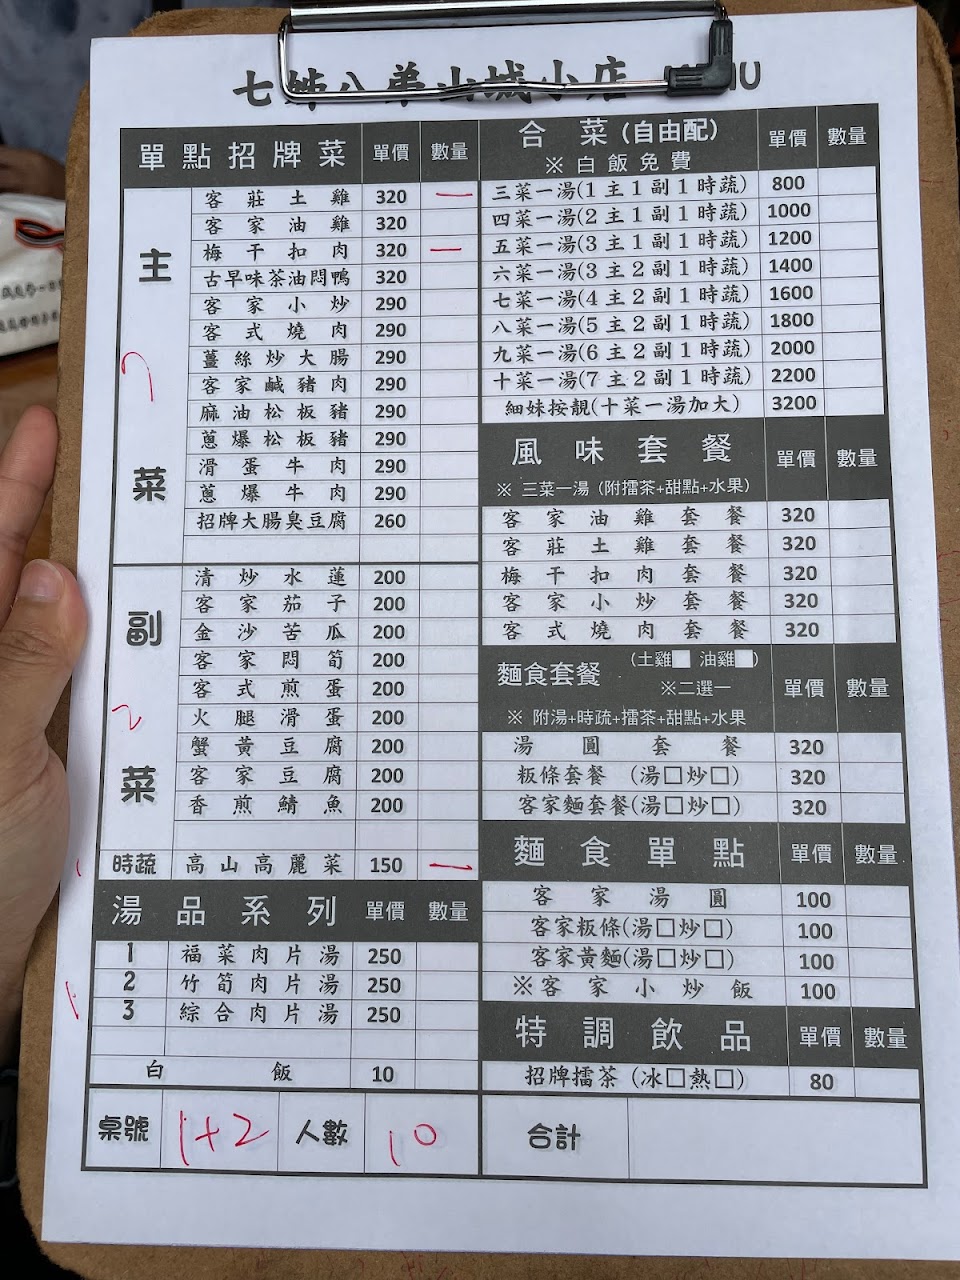 七姊八弟山城小店 MENU
單點招牌菜 單價 數量
主菜
7
客莊土雞 320 一
客家油雞 320
梅干扣肉 320 一
古早味茶油悶鴨 320
客家小炒 290
客式燒肉 290
薑絲炒大腸 290
客家鹹豬肉 290
麻油松板豬 290
蔥爆松板豬 290
滑蛋牛肉 290
蔥爆牛肉 290
招牌大腸臭豆腐 260
副菜
2
清炒水蓮 200
客家茄子 200
金沙苦瓜 200
客家悶筍 200
客式煎蛋 200
火腿滑蛋 200
蟹黃豆腐 200
客家豆腐 200
香煎鯖魚 200
1
時蔬 高山高麗菜 150 一
湯品系列 單價 數量
1
1 福菜肉片湯 250
2 竹筍肉片湯 250
3 綜合肉片湯 250
白飯 10
桌號 1+2 人數 10
合菜(自由配) 單價 數量
※白飯免費
三菜一湯(1主1副1時蔬) 800
四菜一湯(2主1副1時蔬) 1000
五菜一湯(3主1副1時蔬) 1200
六菜一湯(3主2副1時蔬) 1400
七菜一湯(4主2副1時蔬) 1600
八菜一湯(5主2副1時蔬) 1800
九菜一湯(6主2副1時蔬) 2000
十菜一湯(7主2副1時蔬) 2200
細妹按靚(十菜一湯加大) 3200
風味套餐 單價 數量
※ 三菜一湯 (附擂茶+甜點+水果)
客家油雞套餐 320
客莊土雞套餐 320
梅干扣肉套餐 320
客家小炒套餐 320
客式燒肉套餐 320
麵食套餐 (土雞■ 油雞■) 單價 數量
※二選一
※ 附湯+時疏+擂茶+甜點+水果
湯圓套餐 320
粄條套餐 (湯□炒□) 320
客家麵套餐(湯□炒□) 320
麵食單點 單價 數量
客家湯圓 100
客家粄條(湯□炒□) 100
客家黃麵(湯□炒□) 100
※客家小炒飯 100
特調飲品 單價 數量
招牌擂茶 (冰□熱□) 80
合計